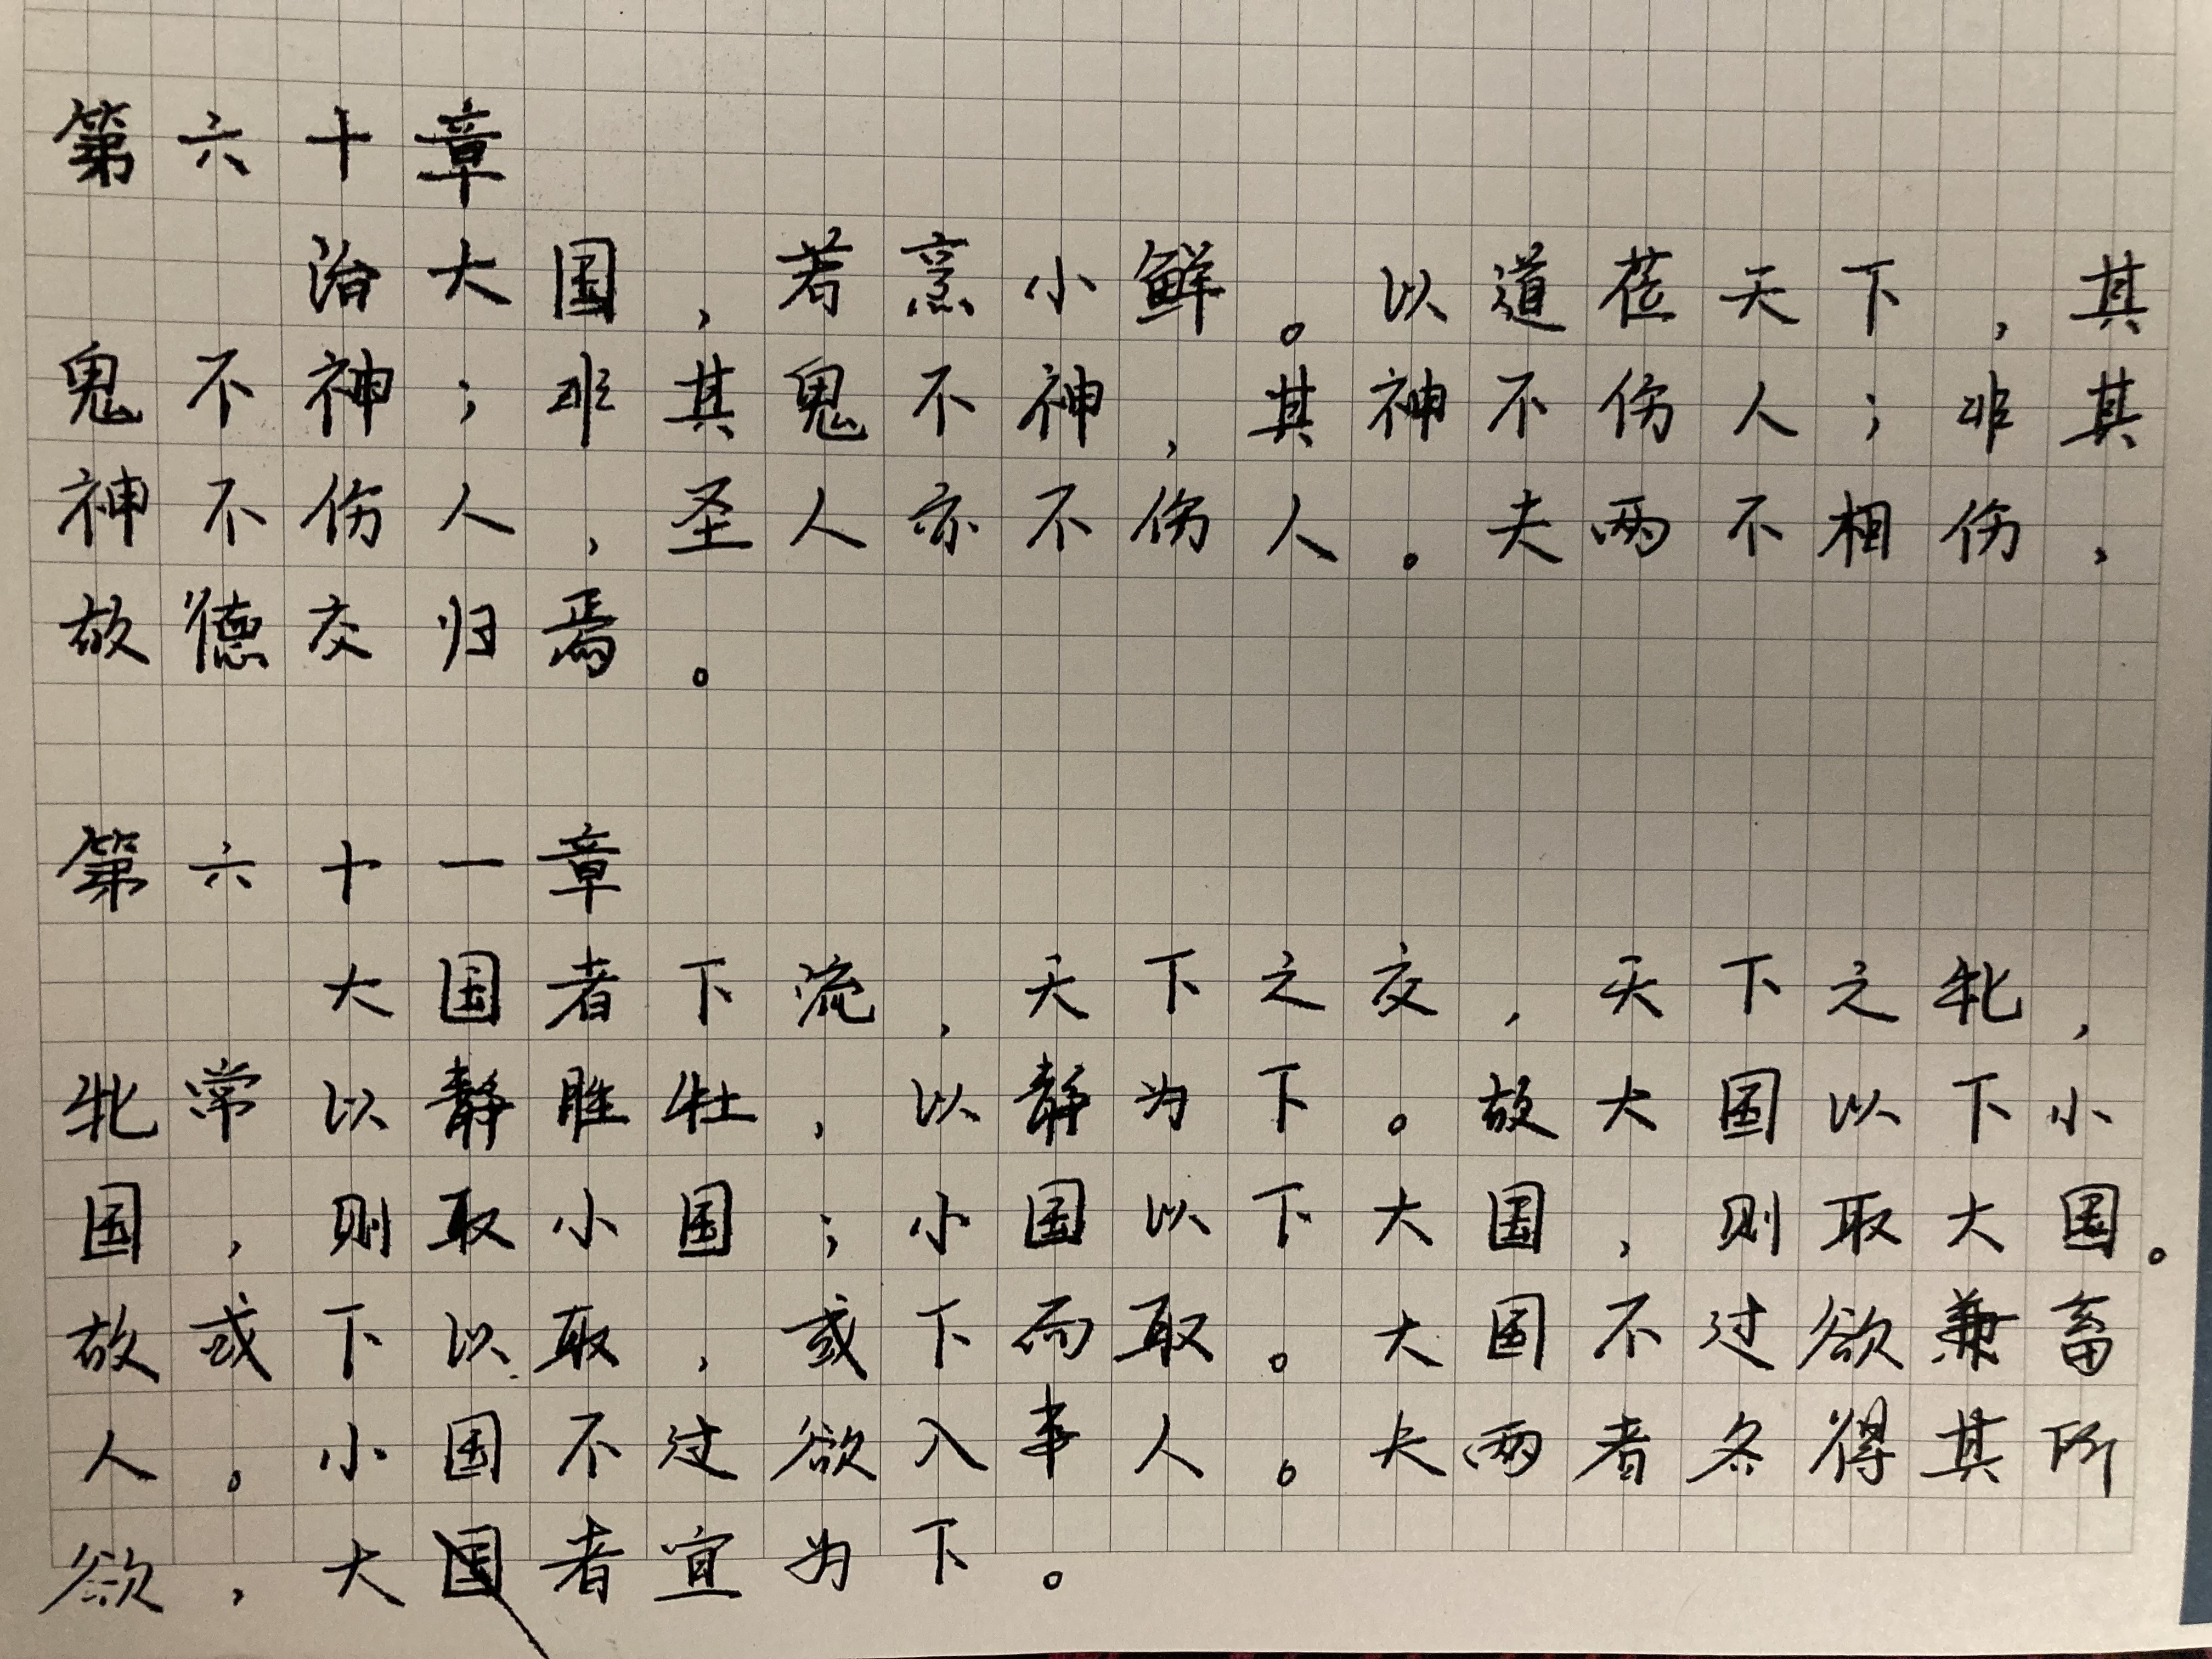 第六十章
治大国，若烹小鲜。以道莅天下，其
鬼不神；非其鬼不神，其神不伤人；非其
神不伤人，圣人亦不伤人。夫两不相伤，
故德交归焉。
第六十一章
大国者下流，天下之交，天下之牝，
牝常以静胜牡，以静为下。故大国以下小
国，则取小国；小国以下大国，则取大国。
故或下以取，或下而取。大国不过欲兼畜
人。小国不过欲入事人。夫两者各得其所
欲，大国者宜为下。